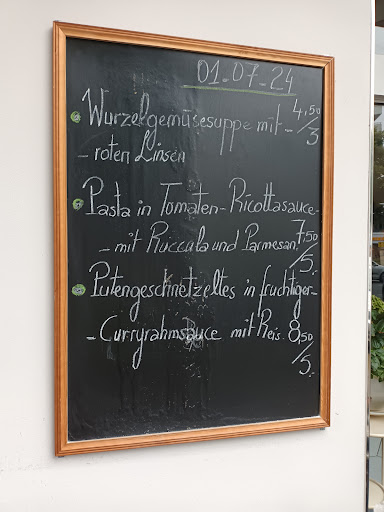 01.07-24
Wurzelgemüsesuppe mit- 4,50/3
- roten Linsen
Pasta in Tomaten-Ricottasauce-
- mit Ruccula und Parmesan. 7,50/5.-
Putengeschnetzeltes in fruchtiger-
- Curryrahmsauce mit Reis. 8,50/5.-